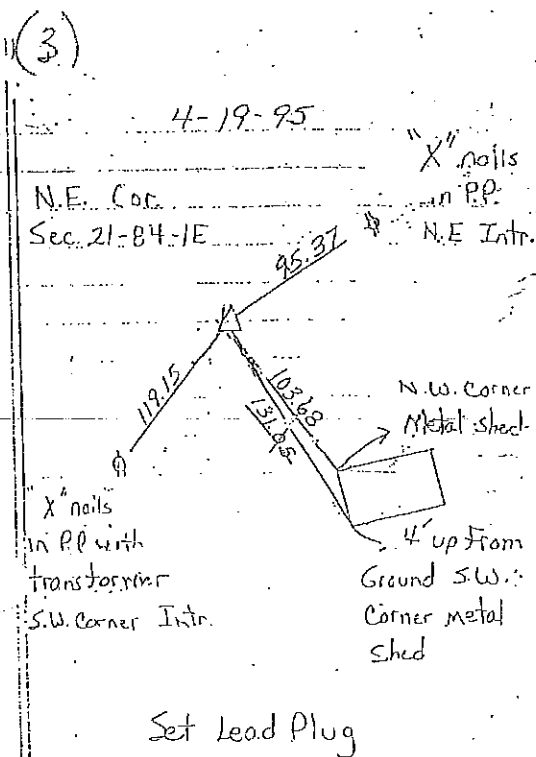 (3)
4-19-95
"X" nails
in P.P.
N.E Intr.
N.E. Cor.
Sec. 21-84-1E
95.37
119.15
103.68
131.95
N.W. Corner
Metal shed
"X" nails
in P.P. with
transformer
S.W. Corner Intr.
4' up From
Ground S.W.
Corner metal
shed
Set Lead Plug